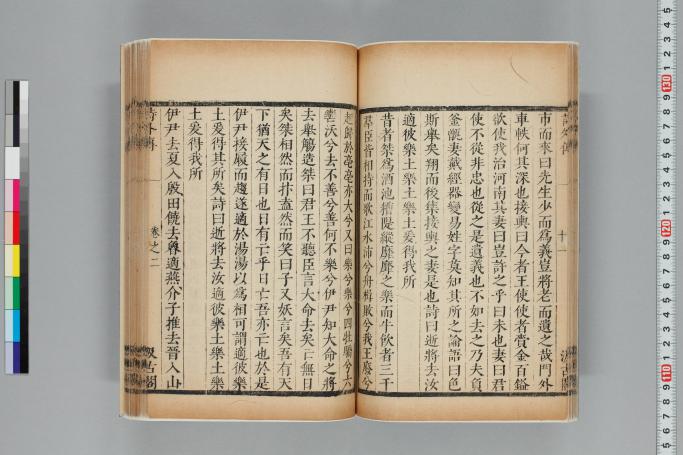 市而來曰先生少而爲義豈將老而遺之哉門外
車軼何其深也接輿曰今者王使使者賫金百鎰
欲使我治河南其妻曰豈許之乎曰未也妻曰君
使不從非忠也從之是遺義也不如去之乃夫負
釜甑妻戴經器變易姓字莫知其所之論語曰色
斯舉矣翔而後集接輿之妻是也詩曰逝將去汝
適彼樂土樂土樂土爰得我所
昔者桀爲酒池糟隄縱靡靡之樂而牛飲者三千
羣臣皆相持而歌江水沛兮舟楫敗兮我王廢兮
趣歸於亳亳亦大兮又曰樂兮樂兮四牡驕兮六
轡沃兮去不善兮善何不樂兮伊尹知大命之將
去舉觴造桀曰君王不聽臣言大命去矣亡無日
矣桀相然而抃盍然而笑曰子又妖言矣吾有天
下猶天之有日也日有亡乎日亡吾亦亡也於是
伊尹接履而趨遂適於湯湯以爲相可謂適彼樂
土爰得其所矣詩曰逝將去汝適彼樂土樂土樂
土爰得我所
伊尹去夏入殷田饒去魯適燕介子推去晉入山
詩外傳
卷之二
汲古閣